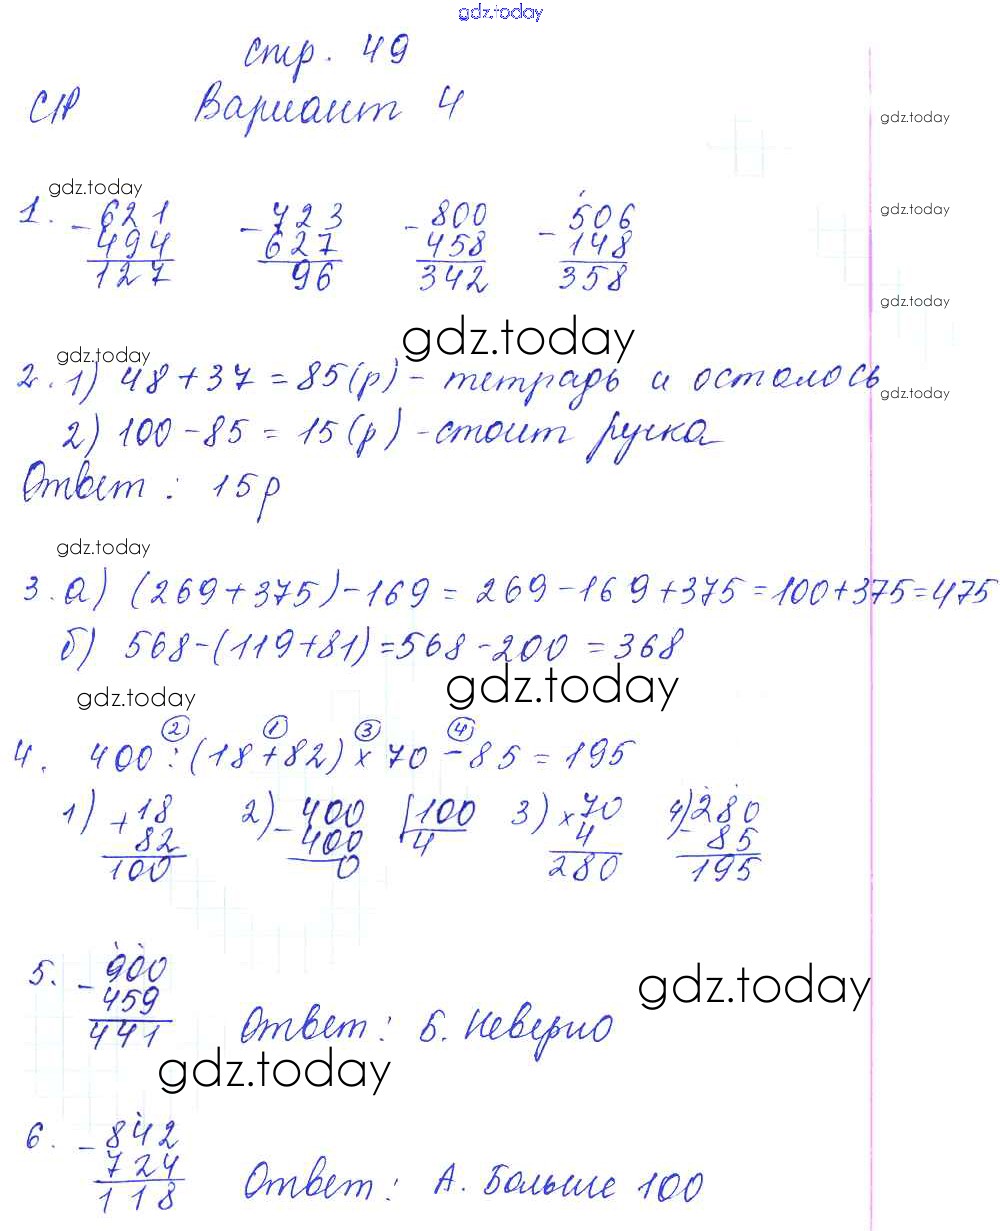 gdz.today
стр. 49
С/Р Вариант 4
gdz.today
gdz.today
1. - 621 - 723 - 800 - 506
gdz.today
494 627 458 148
127 96 342 358
gdz.today
gdz.today
gdz.today
2. 1) 48 + 37 = 85 (р) - тетрадь и осталось
gdz.today
2) 100 - 85 = 15 (р) - стоит ручка
Ответ : 15 р
gdz.today
3. а) (269 + 375) - 169 = 269 - 169 + 375 = 100 + 375 = 475
б) 568 - (119 + 81) = 568 - 200 = 368
gdz.today
gdz.today
2 1 3 4
4. 400 : (18 + 82) × 70 - 85 = 195
1) + 18 2) - 400 100 3) × 70 4) - 280
82 400 4 4 85
100 0 280 195
5. - 900
459
gdz.today
441 Ответ : Б. Неверно
gdz.today
6. - 842
724
118 Ответ : А. Больше 100